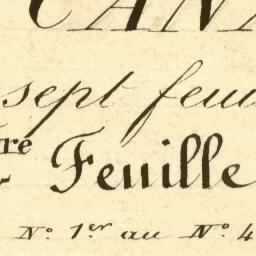 CANA
sept feui
re Feuille
N.º 1.er au N.º 4